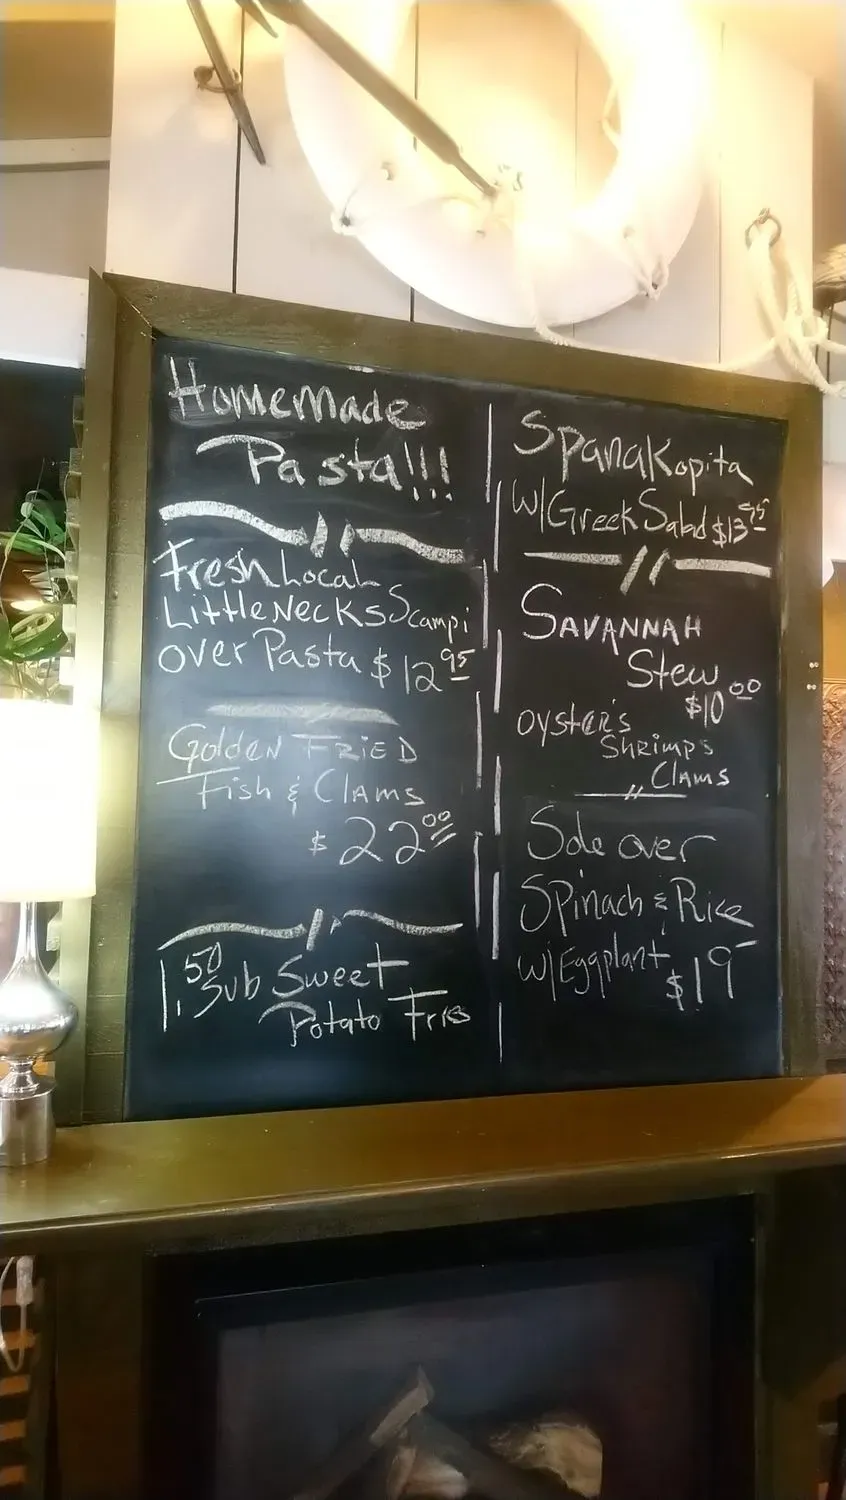 Homemade
Pasta!!!
Fresh Local
LittleNecks Scampi
over Pasta $12.95
Golden Fried
Fish & Clams
$22.00
1.50 Sub Sweet
Potato Fries
SpanaKopita
W/Greek Salad $13.95
SAVANNAH
Stew
$10.00
oyster's
Shrimps
Clams
Sole over
Spinach & Rice
w/Eggplant $19-